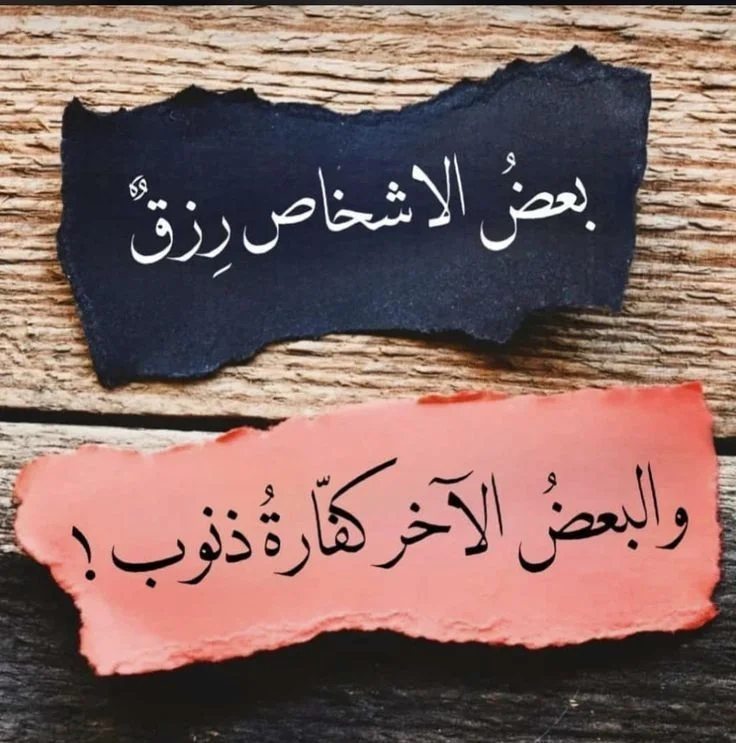 بعضُ الاشخاص رِزقٌ
والبعضُ الآخر كفّارةُ ذنوب !